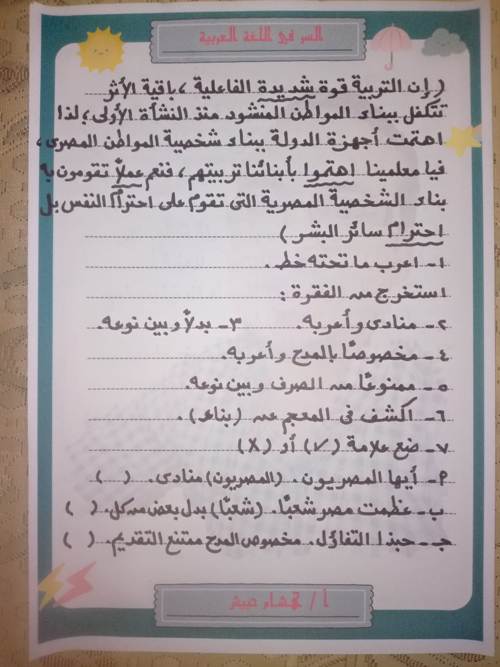 السر في اللغة العربية
(إن التربية قوة شديدة الفاعلية، باقية الأثر
تتكفل ببناء المواطن المنشود منذ النشأة الأولى؛ لذا
اهتمت أجهزة الدولة ببناء شخصية المواطن المصرى،
فيا معلمينا اهتموا بأبنائنا تربيتهم، فنعم عملاً تقومون به
بناء الشخصية المصرية التى تقوم على احترام النفس بل
احترام سائر البشر)
١- اعرب ما تحته خط.
استخرج من الفقرة:
٢- منادى وأعربه. ٣- بدلاً وبين نوعه.
٤- مخصوصًا بالمدح وأعربه.
٥- ممنوعًا من الصرف وبين نوعه.
٦- اكشف فى المعجم عن (بناء).
٧- ضع علامة (✓) أو (X)
أ- أيها المصريون. (المصريون) منادى. ( )
ب- عظمت مصر شعبًا. (شعبًا) بدل بعض من كل. ( )
جـ- حبذا التفاؤل. مخصوص المدح ممتنع التقديم. ( )
أ /